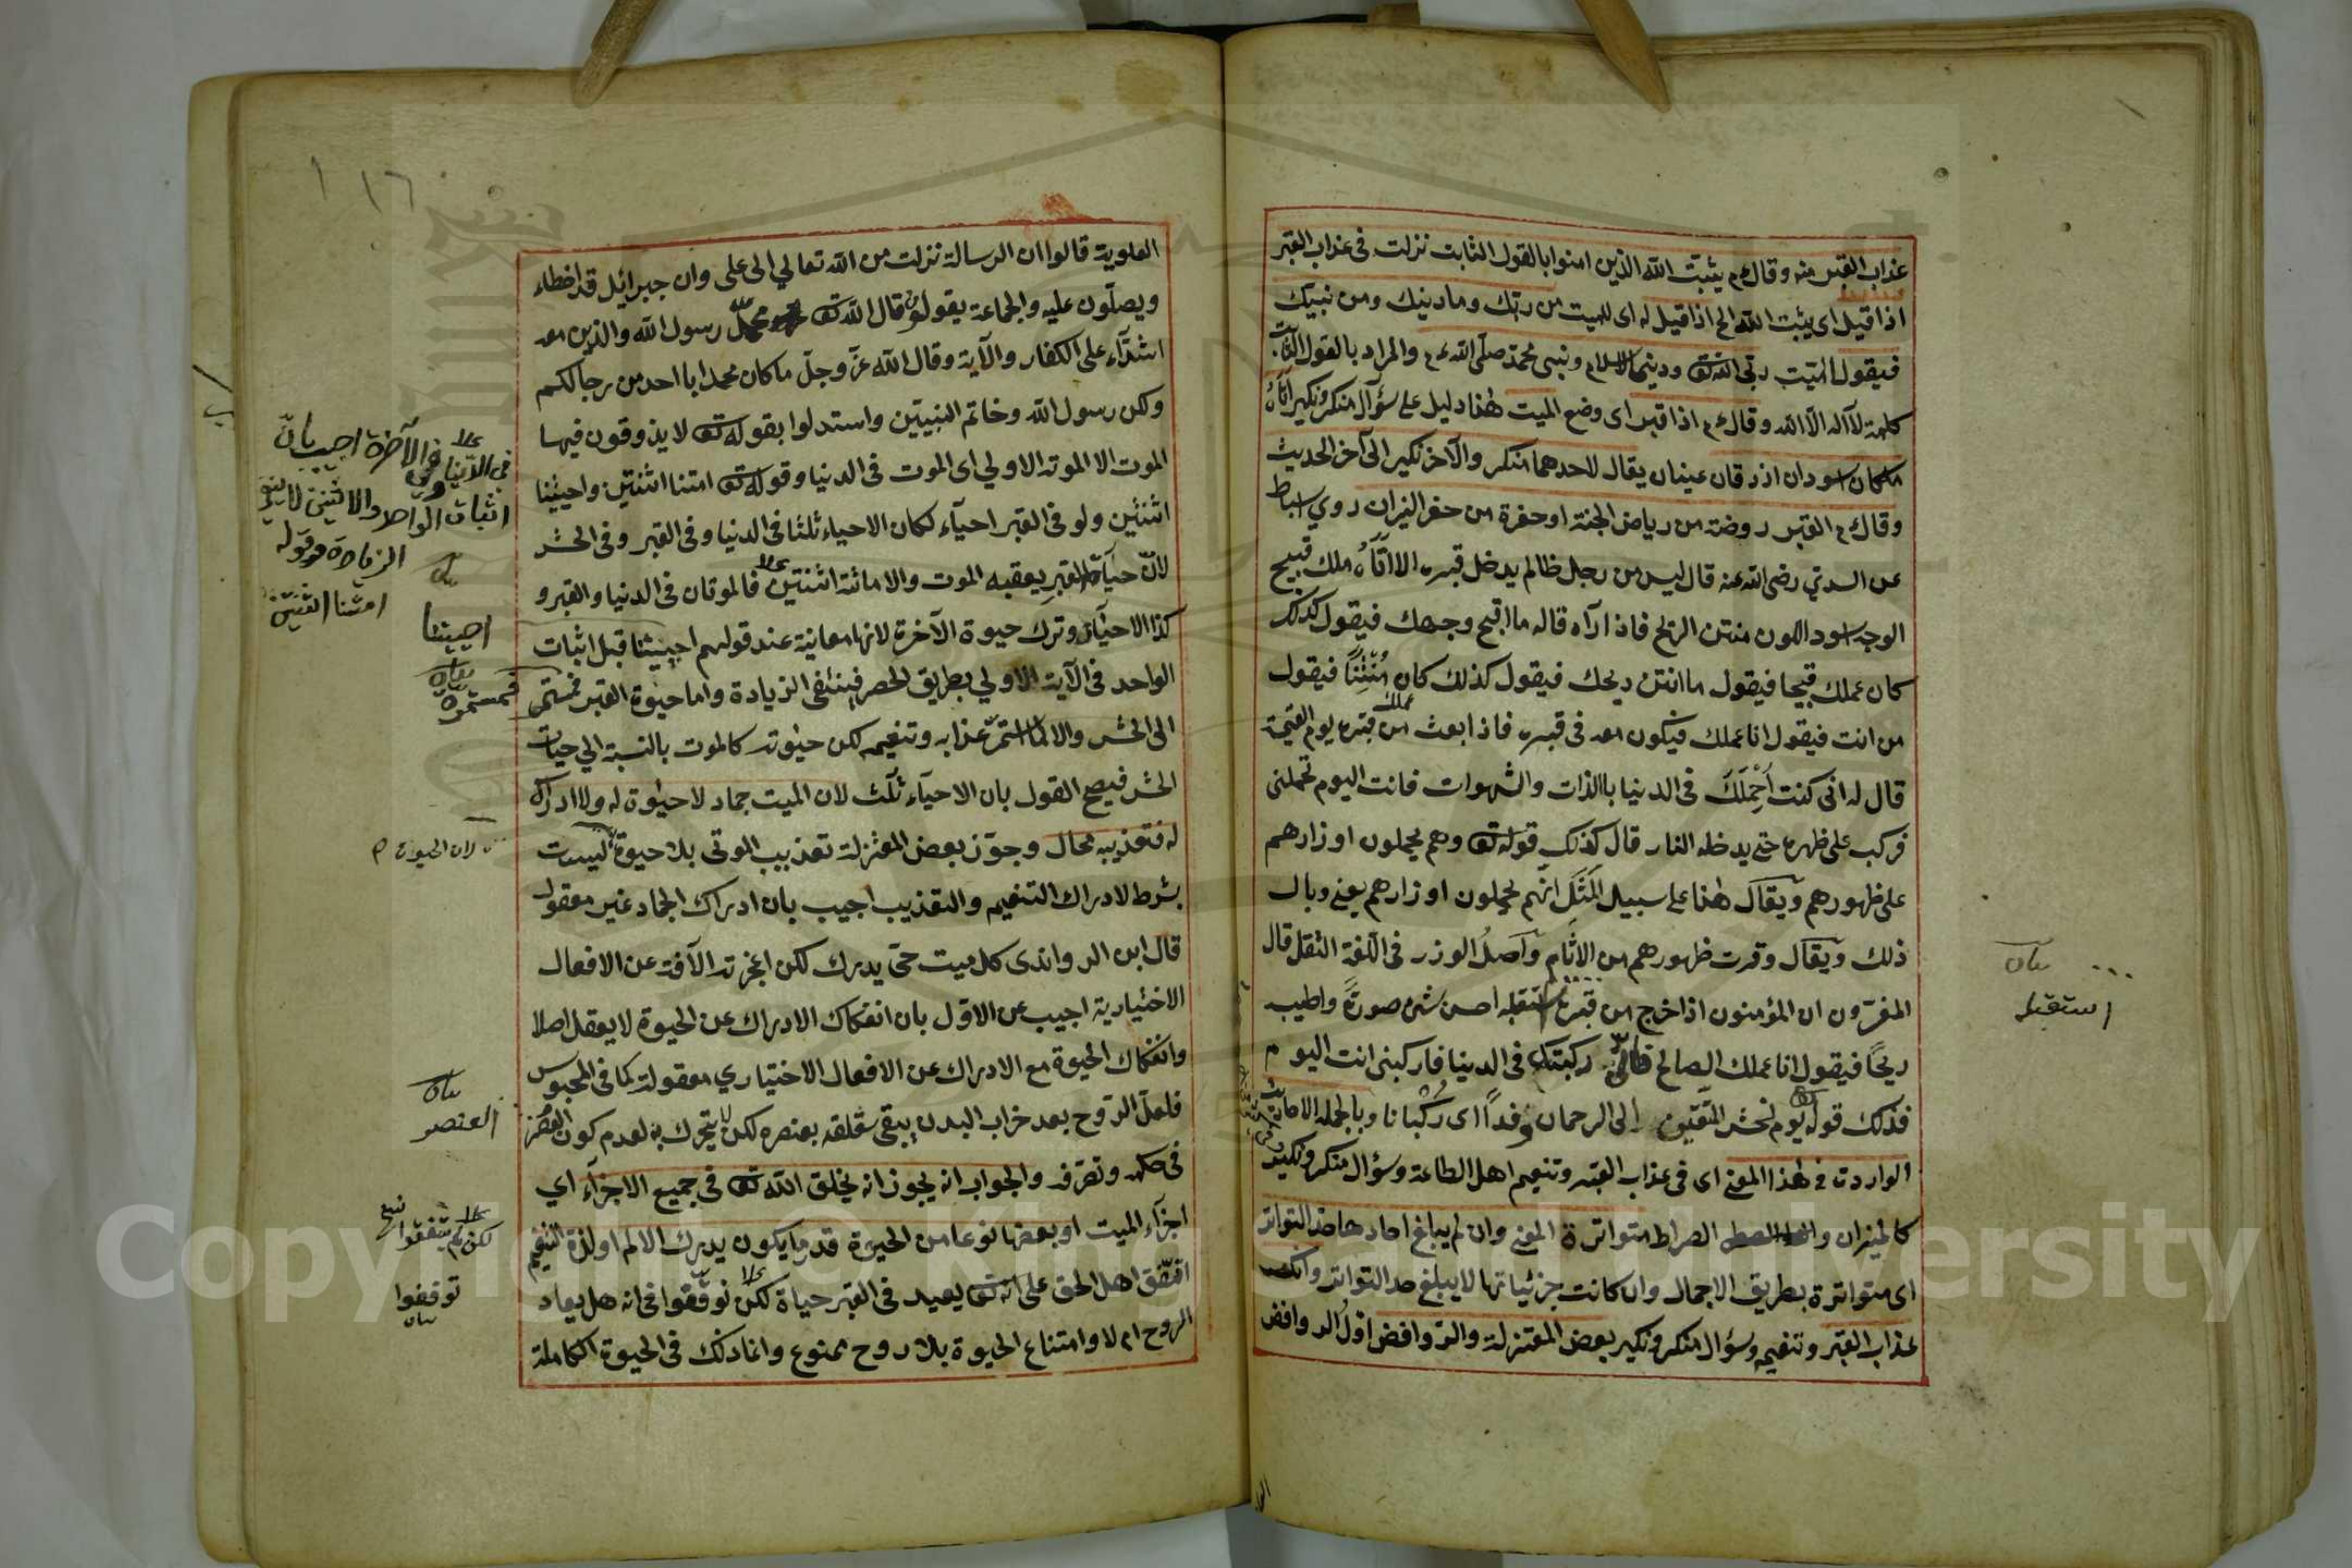 عذاب القبر منه وقال عم يثبت الله الذين امنوا بالقول الثابت نزلت فى عذاب القبر
اذا قيل اى يثبت الله الخ اذا قيل له اى للميت من ربك وما دينك ومن نبيك
فيقول الميت ربى الله تع ودينى الاسلام ونبيى محمد صلى الله عم والمراد بالقول الثابت
كلمة لآ اله الا الله وقال عم اذا قبر اى وضع الميت هذا دليل على سؤآل منكر ونكير اتاه
ملكان اسودان ازرقان عينان يقال لاحدهما منكر والآخر نكير الى آخر الحديث
وقال عم القبر روضة من رياض الجنة او حفرة من حفر النيران روي اسباط
عن السدي رضى الله عنه قال ليس من رجل ظالم يدخل قبره الا اتاه ملك قبيح
الوجه اسود اللون منتن الريح فاذا رآه قال له ما اقبح وجهك فيقول كذلك
كان عملك قبيحا فيقول ما انتن ريحك فيقول كذلك كان مُنْتِنًا فيقول
من انت فيقول انا عملك فيكون معه فى قبره فاذا بعث من قبره يوم القيمة
عملك
قال له انى كنت اَحْمِلَكَ فى الدنيا بالذات والشهوات فانت اليوم تحملنى
فركب على ظهره حتى يدخله النار قال كذلك قوله تع وهم يحملون اوزارهم
على ظهورهم ويقال هذا على سبيل المَثَلِ انهم يحملون اوزارهم يعنى وبال
ذلك ويقال وقرت ظهورهم من الآثام واصلُ الوزر فى اللغة الثقل قال
المفسرون ان المؤمنون اذا خرج من قبره استقبله احسن شئ صورةً واطيب
ريحًا فيقول انا عملك الصالح ركبتك فى الدنيا فاركبنى انت اليوم
فذلك قوله يوم نحشر المتقين الى الرحمان وفداً اى رُكْبانا وبالجملة الاحاديث
الواردت فى هذا المعنى اى فى عذاب القبر وتنعيم اهل الطاعة وسؤال منكر ونكير
كالميزان والصراط متواترة المعنى وان لم يبلغ احادها حد التواتر
اى متواترة بطريق الاجمال وان كانت جزئياتها لا يبلغ حد التواتر وانكر
عذاب القبر وتنعيمه وسؤال منكر ونكير بعض المعتزلة والروافض اول الروافض
استقبله
العلوية قالوا ان الرسالة نزلت من الله تعالي الى على وان جبرائيل قد اخطاء
ويصلون عليه والجماعة يقولون قال الله تع محمد رسول الله والذين معه
اشدآء على الكفار والآية وقال الله عز وجل ما كان محمد ابا احد من رجالكم
ولكن رسول الله وخاتم النبيين واستدلوا بقوله تع لا يذوقون فيها
الموت الا الموتة الاولي اى الموت فى الدنيا وقوله تع امتنا اثنتين واحييتنا
اثنتين ولو فى القبر احيآء لكان الاحياء ثلثا فى الدنيا وفى القبر وفى الحشر
لان حياة القبر يعقبه الموت والاماتة اثنتين فالموتان فى الدنيا والقبر و
كذا الاحيآن وترك حيوة الآخرة لانها معاينة عند قولهم احييتنا قبل اثبات
الواحد فى الآية الاولي بطريق الحصر فينتفى الزيادة واما حيوة القبر فمستمر
الى الحشر والا لما استمر عذابه وتنعيمه لكن حيوته كالموت بالنسبة الي حيات
الحشر فيصح القول بان الاحيآء ثلث لان الميت جماد لا حيوة له ولا ادراك
له فتعذيبه محال وجوّز بعض المعتزلة تعذيب الموتى بلا حيوة ليست
بشرط لادراك التنعيم والتعذيب اجيب بان ادراك الجماد غير معقول
قال ابن الرواندى كل ميت حى يدرك لكن اعجزته الآفة عن الافعال
الاختيارية اجيب عن الاوّل بان انفكاك الادراك عن الحيوة لا يعقل اصلا
وانفكاك الحيوة مع الادراك عن الافعال الاختياري معقولة كما فى المحبوس
فلعل الروح بعد خراب البدن يبقى تعلقه بعنصره لكن لا يتحرك به لعدم كون العنصر
فى حكمه وتصرفه والجواب انه يجوز انه يخلق الله تع فى جميع الاجزآء اي
اجزآء الميت او بعضها نوعا من الحيوة قدر ما يكون يدرك الالم او لذة التنعيم
اتفق اهل الحق على انه تع يعيد فى القبر حياة لكن توقفوا فى انه هل يعاد
الروح ام لا وامتناع الحيوة بلا روح ممنوع وانما ذلك فى الحيوة الكاملة
١١٦
فى الدنيا وفى الآخرة اجيب بانّ
اثبات الواحد والاثنين لا ينفى
الزيادة هو قوله
امتنا اثنتين
احييتنا
بيان
فمستمرة
لان الحيوة
بيان
العنصر
لكن لم يتفقوا
توقفوا
بيان
Copyright © King Saud University